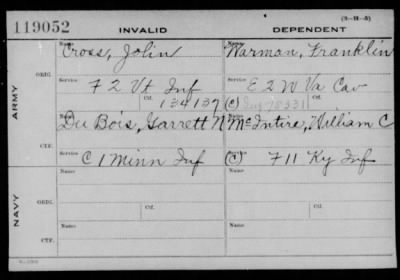 119052 INVALID DEPENDENT (3-111-5)
ARMY
ORIG.
Name Cross, John Name Warman, Franklin
Service F 2 Vt Inf Service E 2 W Va Cav
Ctf. 134137 (C)
CTF.
Name Du Bois, Garrett N Name McIntire, William C
Service C 1 Minn Inf Service (C) F 11 Ky Inf
NAVY
ORIG.
Name Name
Service Ctf. Service Ctf.
CTF.
Name Name
Service Service